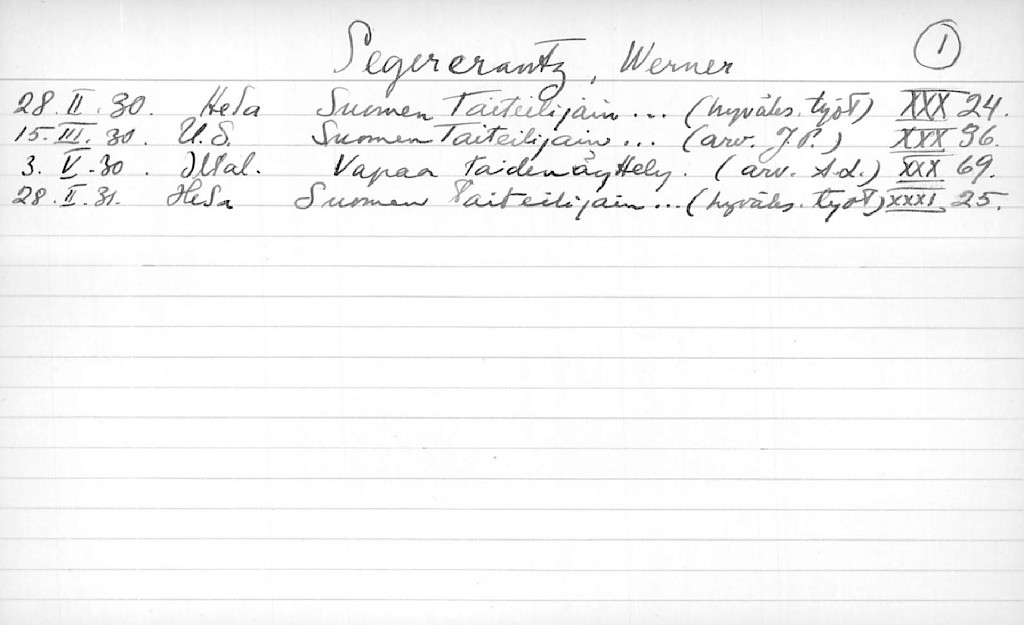 Segercrantz, Werner 1
28. II. 30. HeSa Suomen Taiteilijain... (hyväks. työt) XXX 24.
15. III. 30. U.S. Suomen Taiteilijain... (arv. J.P.) XXX 36.
3. V. 30. Iltal. Vapaa taidenäyttely. (arv. A.L.) XXX 69.
28. II. 31. HeSa Suomen Taiteilijain... (hyväks. työt) XXXI 25.